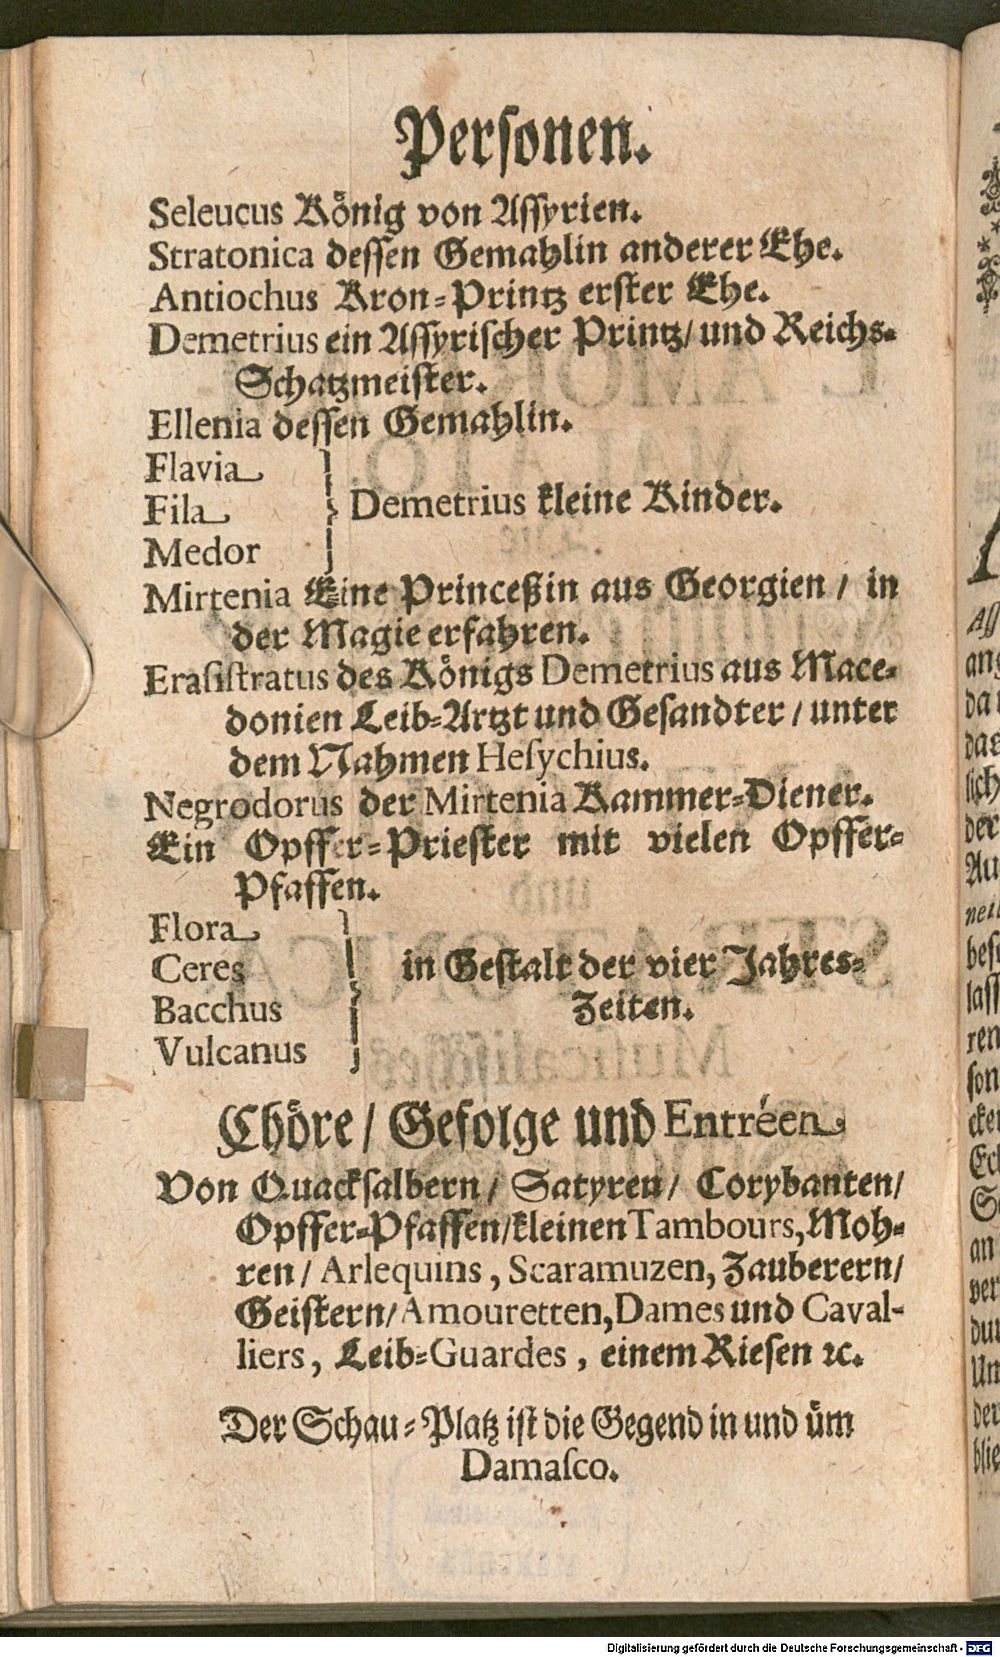 Personen.
Seleucus König von Assyrien.
Stratonica dessen Gemahlin anderer Ehe.
Antiochus Kron-Printz erster Ehe.
Demetrius ein Assyrischer Printz/ und Reichs-
Schatzmeister.
Ellenia dessen Gemahlin.
Flavia
Fila
Medor
Demetrius kleine Kinder.
Mirtenia Eine Princeßin aus Georgien / in
der Magie erfahren.
Erasistratus des Königs Demetrius aus Mace-
donien Leib-Artzt und Gesandter / unter
dem Nahmen Hesychius.
Negrodorus der Mirtenia Kammer-Diener.
Ein Opffer-Priester mit vielen Opffer-
Pfaffen.
Flora
Ceres
Bacchus
Vulcanus
in Gestalt der vier Jahres-
Zeiten.
Chöre / Gefolge und Entréen
Von Quacksalbern / Satyren / Corybanten/
Opffer-Pfaffen/kleinen Tambours, Moh-
ren / Arlequins, Scaramuzen, Zauberern/
Geistern/Amouretten, Dames und Caval-
liers, Leib-Guardes, einem Riesen ꝛc.
Der Schau-Platz ist die Gegend in und üm
Damasco.
Digitalisierung gefördert durch die Deutsche Forschungsgemeinschaft - DFG